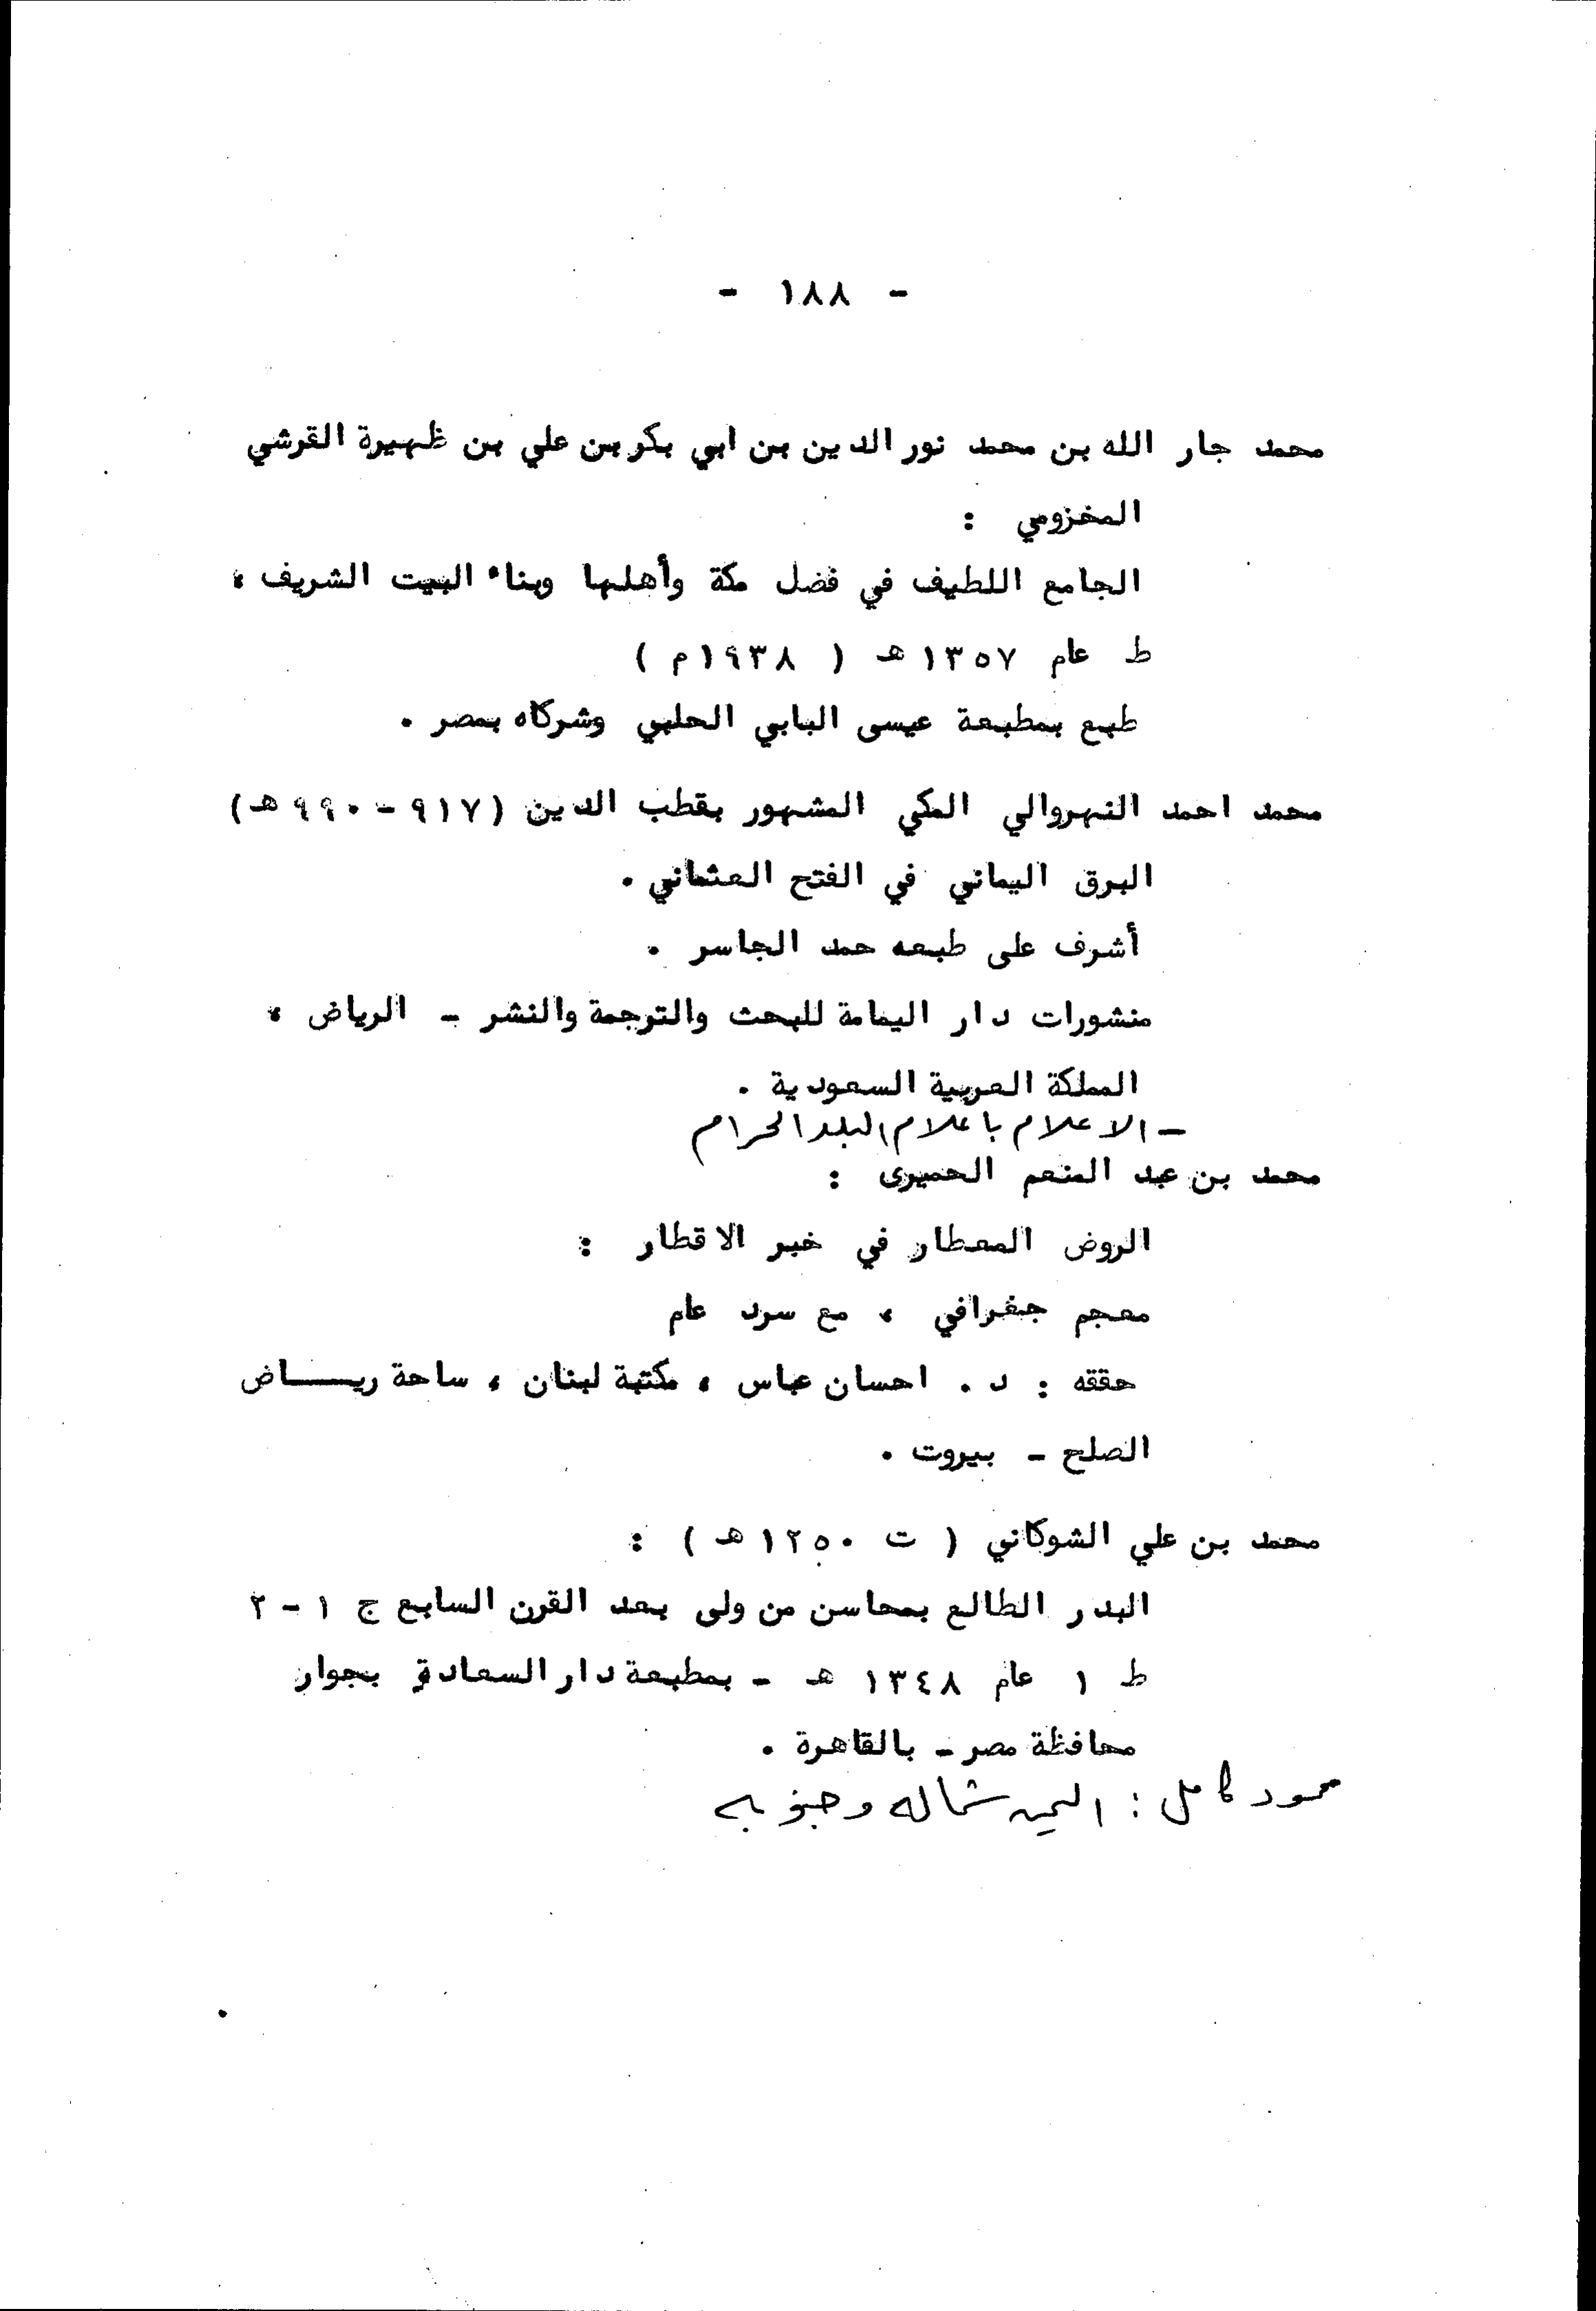 - ١٨٨ -
محمد جار الله بن محمد نور الدين بن ابي بكر بن علي بن ظهيرة القرشي
المخزومي :
الجامع اللطيف في فضل مكة وأهلها وبناء البيت الشريف ،
ط عام ١٣٥٧ هـ ( ١٩٣٨م )
طبع بمطبعة عيسى البابي الحلبي وشركاه بمصر .
محمد احمد النهروالي المكي المشهور بقطب الدين (٩١٧ - ٩٩٠ هـ)
البرق اليماني في الفتح العثماني .
أشرف على طبعه حمد الجاسر .
منشورات دار اليمامة للبحث والترجمة والنشر - الرياض ،
المملكة العربية السعودية .
- الاعلام باعلام البلد الحرام
محمد بن عبد المنعم الحميرى :
الروض المعطار في خبر الاقطار :
معجم جغرافي ، مع سرد عام
حققه : د . احسان عباس ، مكتبة لبنان ، ساحة ريـــاض
الصلح - بيروت .
محمد بن علي الشوكاني ( ت ١٢٥٠ هـ ) :
البدر الطالع بمحاسن من ولى بعد القرن السابع ج ١ - ٢
ط ١ عام ١٣٤٨ هـ - بمطبعة دار السعادة بجوار
محافظة مصر - بالقاهرة .
محمود كامل : اليمن شماله وجنوبه